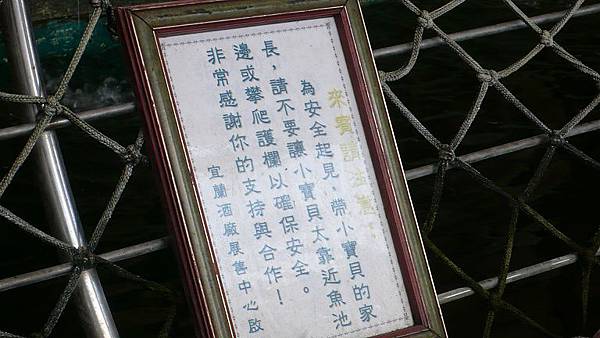 來賓請注意：
為安全起見，帶小寶貝的家
長，請不要讓小寶貝太靠近魚池
邊或攀爬護欄以確保安全。
非常感謝你的支持與合作！
宜蘭酒廠展售中心啟